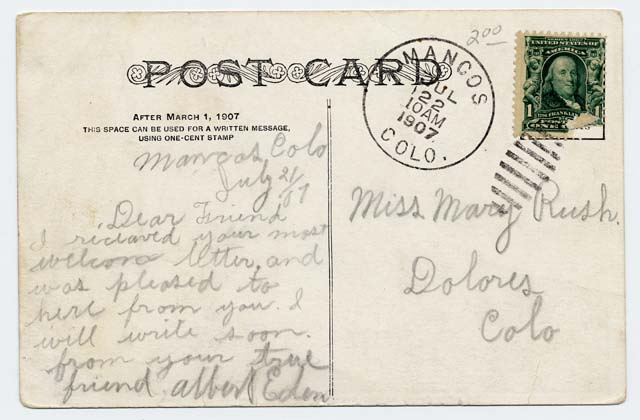 200
POST CARD
MANCOS
JUL
22
10AM
1907
COLO.
UNITED STATES OF
1
FRANKLIN
AFTER MARCH 1, 1907
THIS SPACE CAN BE USED FOR A WRITTEN MESSAGE,
USING ONE-CENT STAMP
Mancos, Colo
July 21/07
Dear Friend
I recieved your most
welcome letter, and
was pleased to
here from you. I
will write soon.
from your true
friend, Albert Eden
Miss Mary Rush.
Dolores
Colo